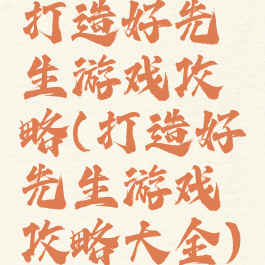 打造好先
生游戏攻
略(打造好
先生游戏
攻略大全)